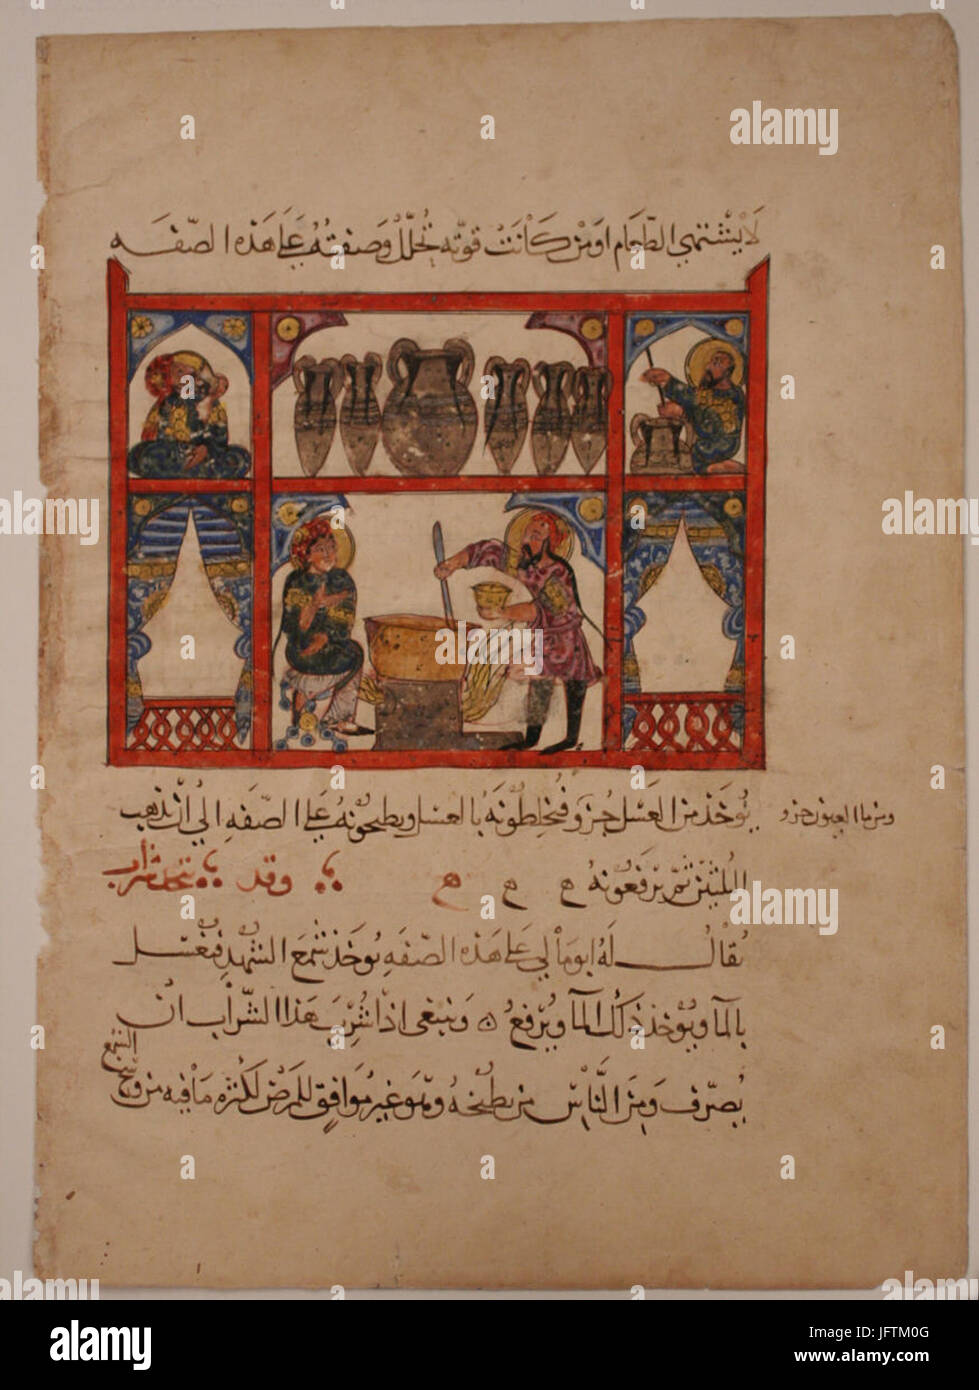 لَا يَشْتَهِي الطَّعَام اومَن كَانَتْ قوّته تُحَلَّلْ وَصَنعَتُهُ عَلَى هَذِهِ الصّفَه
يُوخَذ مِن العَسَل جُزو فيُخلِطُونَهُ بالعسَل ويطبخُونهُ عَلى الصِّفَهِ الي انّ يَذهب
ومن ما العيون جزو
الثلثين ثمّ يرفعُونهُ وقد يتخذ شراب
يُقَالُ لَهُ ابومَا لي عَلى هَذِهِ الصِّفَهِ يُوخَذ شمَع الشهْدِ فيغسَل
بالمآ ويُوخذ ذَلك المآ ويُرفعُ وَينبغي اذا شُرِبَ هَذا الشّرَاب انْ
يُصِّرف وَمِنَ النَّاسِ من يطبخهُ وهو غير مُوَافق للمرضَى لكثره مَا فيه من وسخ
الشمع
a alamy
alamy
Image ID: JF7M0G
www.alamy.com